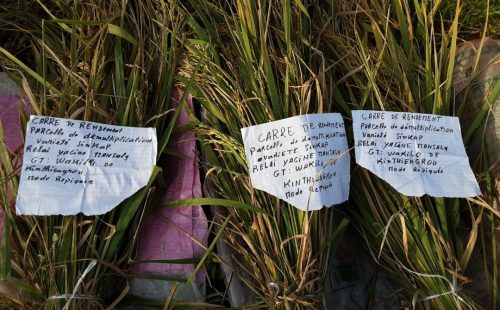 CARRE DE RENDEMENT
PARCELLE de démultiplication
Variété SINKAP
RELAI YACINE MANSALY
GT: WAKILO DE
KINTHIENGROU
mode Repiquer
CARRE DE RENDEMENT
PARCELLE de démultiplication
VARIETE SINKAP
RELAI YACINE MANSALY
GT: WAKILO DE
mode
CARRE DE RENDEMENT
PARCELLE de démultiplication
Variété SINKAP
RELAI YACINE MANSALY
GT: WAKILO DE
KINTHIENGROU
mode Repiqués